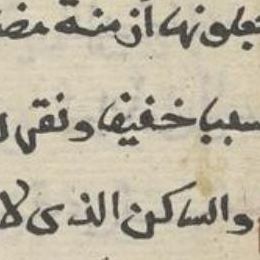 يجعلونها أزمنة مضا
سببا خفيفا ونقر ا
والساكن الذى لا